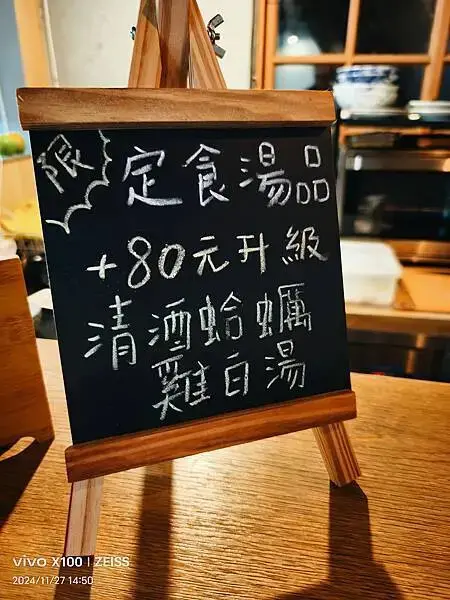 限
定食湯品
+80元升級
清酒蛤蠣
雞白湯
vivo X100 | ZEISS
2024/11/27 14:50